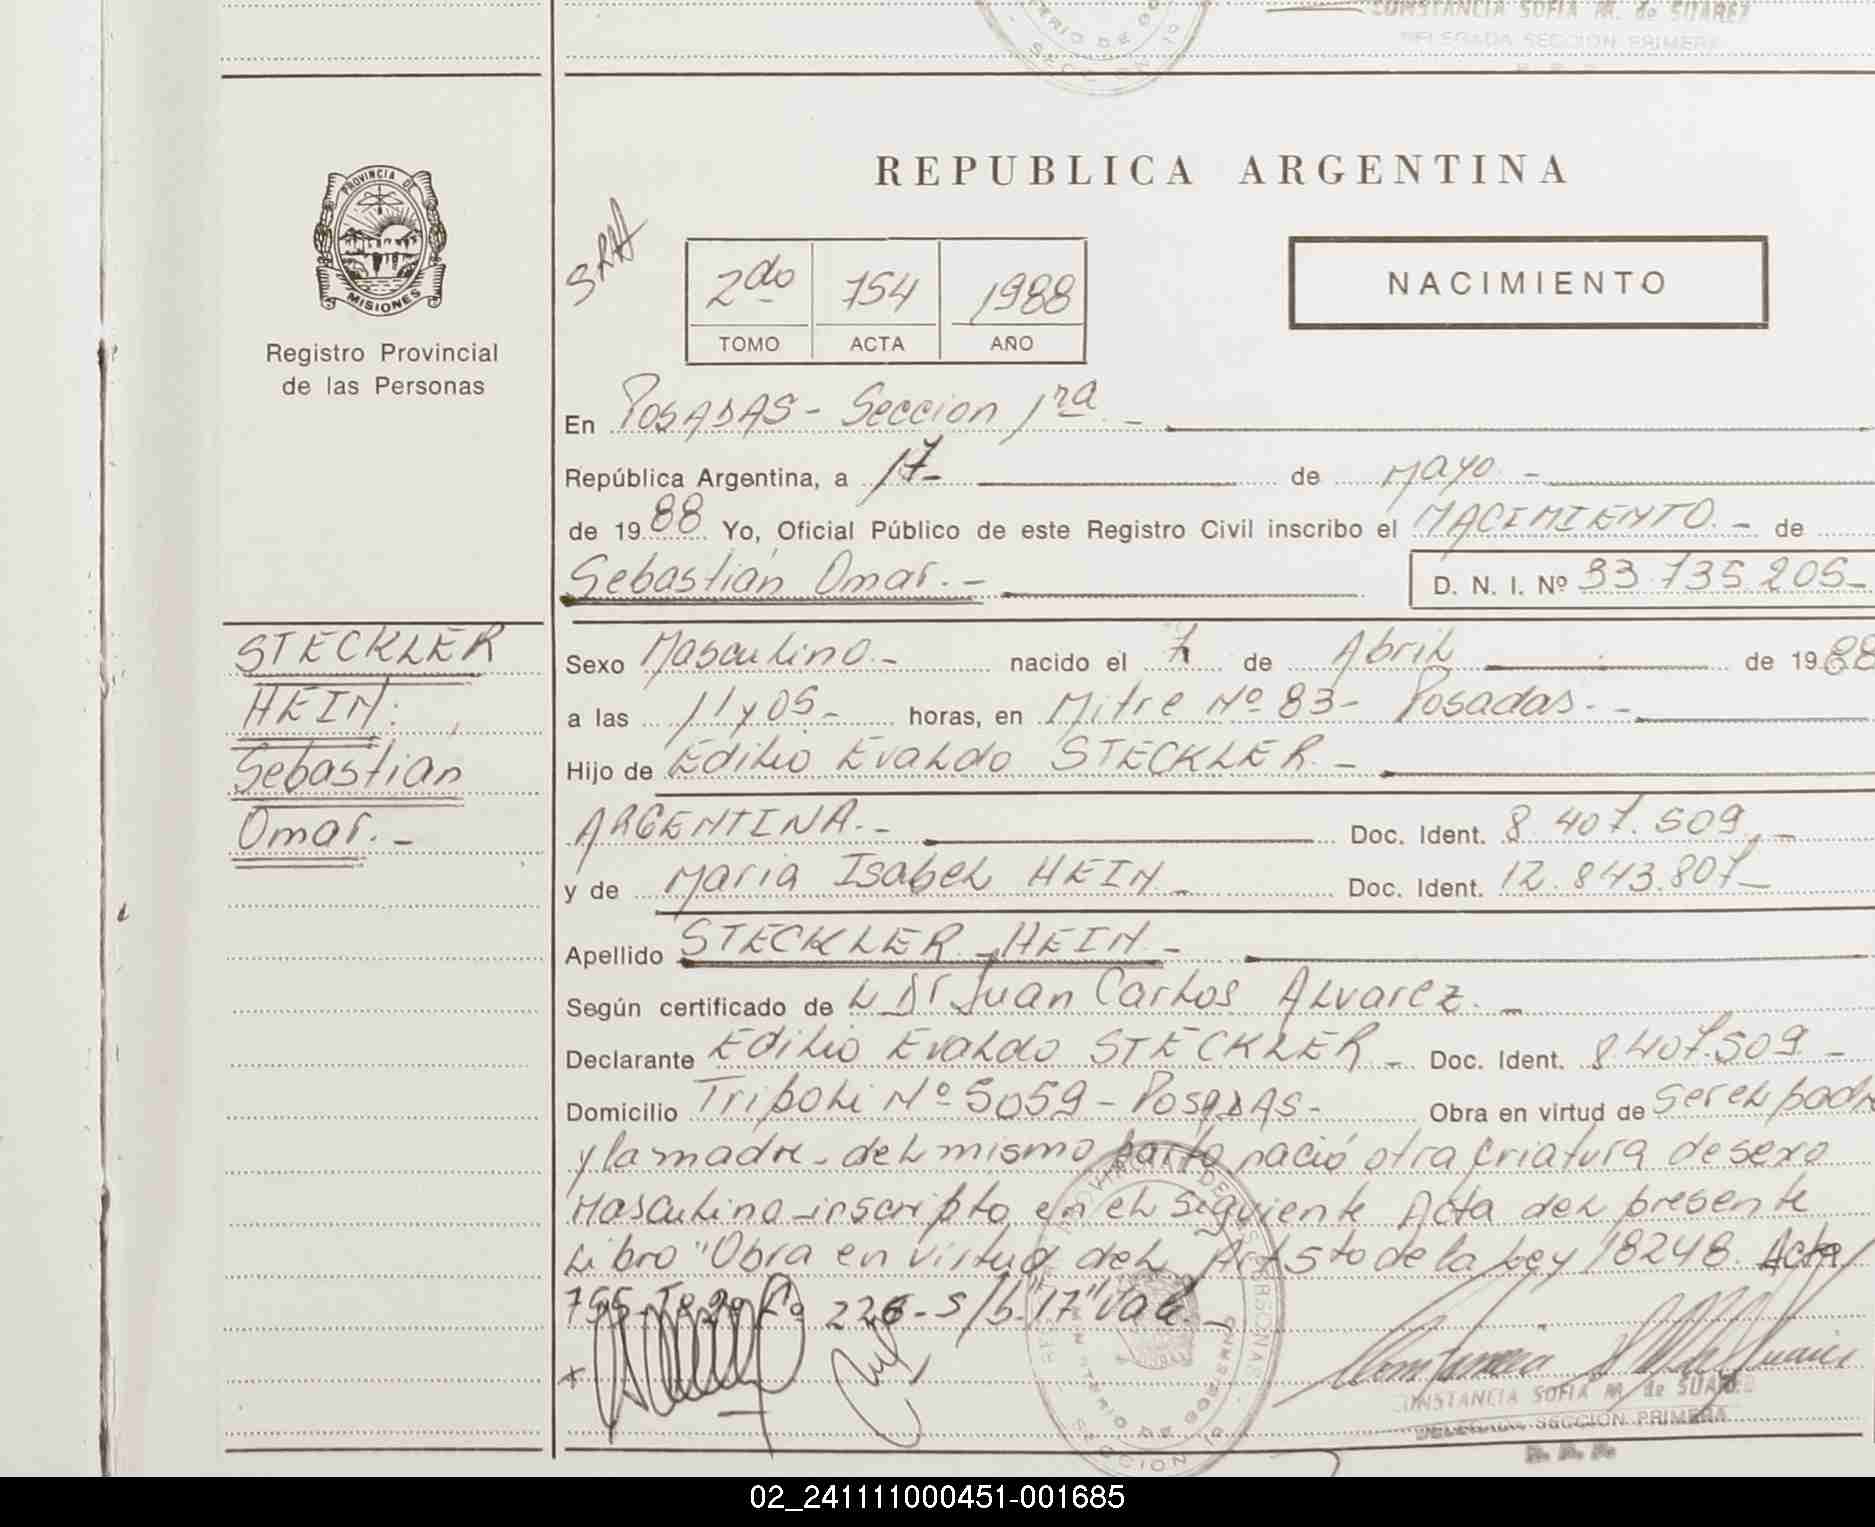 CONSTANCIA SOFIA M. de SUAREZ
DELEGADA SECCION PRIMERA
REPUBLICA ARGENTINA
PROVINCIA DE
MISIONES
Registro Provincial
de las Personas
2do 754 1988
TOMO ACTA AÑO
NACIMIENTO
En POSADAS - Seccion 1ra -
República Argentina, a 17- de Mayo. -
de 1988 Yo, Oficial Público de este Registro Civil inscribo el NACIMIENTO. - de
Sebastián Omar. - D. N. I. Nº 33.735.205-
STECKLER
HEIN.
Sebastian
Omar. -
Sexo Masculino. - nacido el 7 de Abril de 1988
a las 11 y 05 - horas, en Mitre Nº 83 - Posadas. -
Hijo de Edilio Evaldo STECKLER. -
ARGENTINA. - Doc. Ident. 8.407.509. -
y de Maria Isabel HEIN - Doc. Ident. 12.843.807 -
Apellido STECKLER - HEIN -
Según certificado de L Dr Juan Carlos Alvarez. -
Declarante Edilio Evaldo STECKLER - Doc. Ident. 8.407.509 -
Domicilio Tripoli Nº 5059 - POSADAS - Obra en virtud de ser el padre
y la madre - del mismo parto nació otra criatura de sexo
Masculino - inscripto en el siguiente Acta del presente
Libro "Obra en virtud del Art 5to de la Ley 18248. Acta
755 - Tº 2º Fº 226 - S/b "17" Vale. -
CONSTANCIA SOFIA M. de SUAREZ
DELEGADA SECCION PRIMERA
02_241111000451-001685